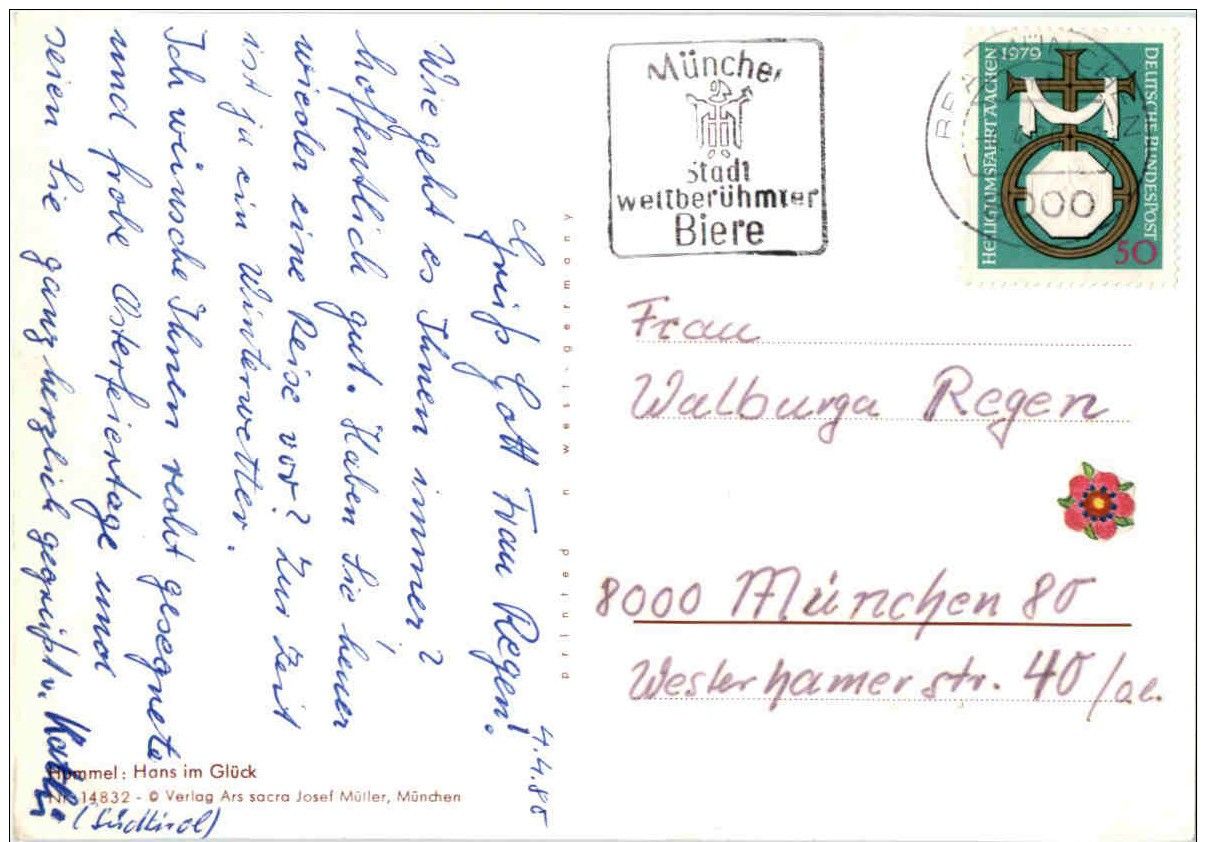 Münche
Stadt
weltberühmter
Biere
HEILIGTUMSFAHRT AACHEN 1979
DEUTSCHE BUNDESPOST
50
Frau
Walburga Regen
8000 München 80
Westerhamerstr. 40/
4.4.80
Grüß Gott Frau Regen!
Wie geht es Ihnen immer?
hoffentlich gut. Haben Sie heuer
wieder eine Reise vor? Zur Zeit
ist ja ein Winterwetter.
Ich wünsche Ihnen recht gesegnete
und frohe Osterfeiertage und
seien Sie ganz herzlich gegrüßt v.
(Südtirol)
printed in west-germany
Hummel: Hans im Glück
Nr. 14832 - © Verlag Ars sacra Josef Müller, München